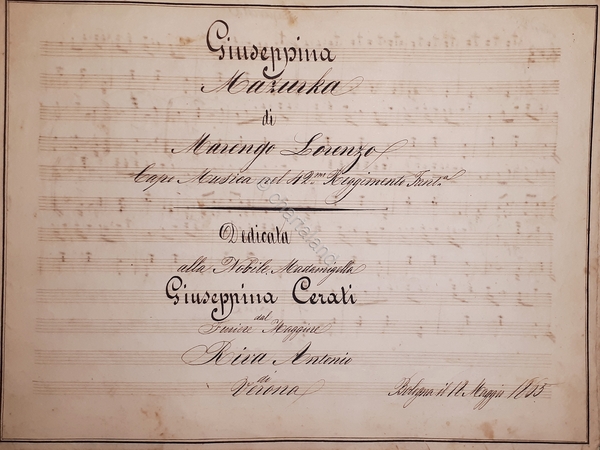 Giuseppina
Mazurka
di
Marengo Lorenzo
Capo Musica nel 42.mo Reggimento Fant.a
Dedicata
alla Nobile Madamigella
Giuseppina Cerati
dal
Furiere Maggiore
Riva Antonio
da
Verona
Bologna il 12 Maggio